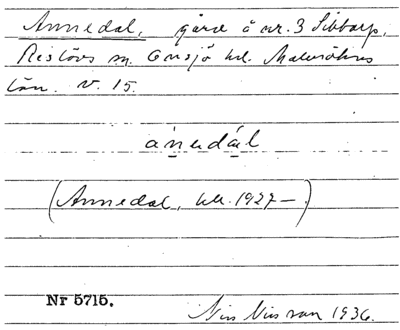 Annedal, gård å nr. 3 Sibbarp,
Röstövs sn. Onsjö hd. Malmöhus
län. V. 15.
ánedál
(Annedal, hk. 1927–)
Nr 5715.
Nils Nilsson 1936.